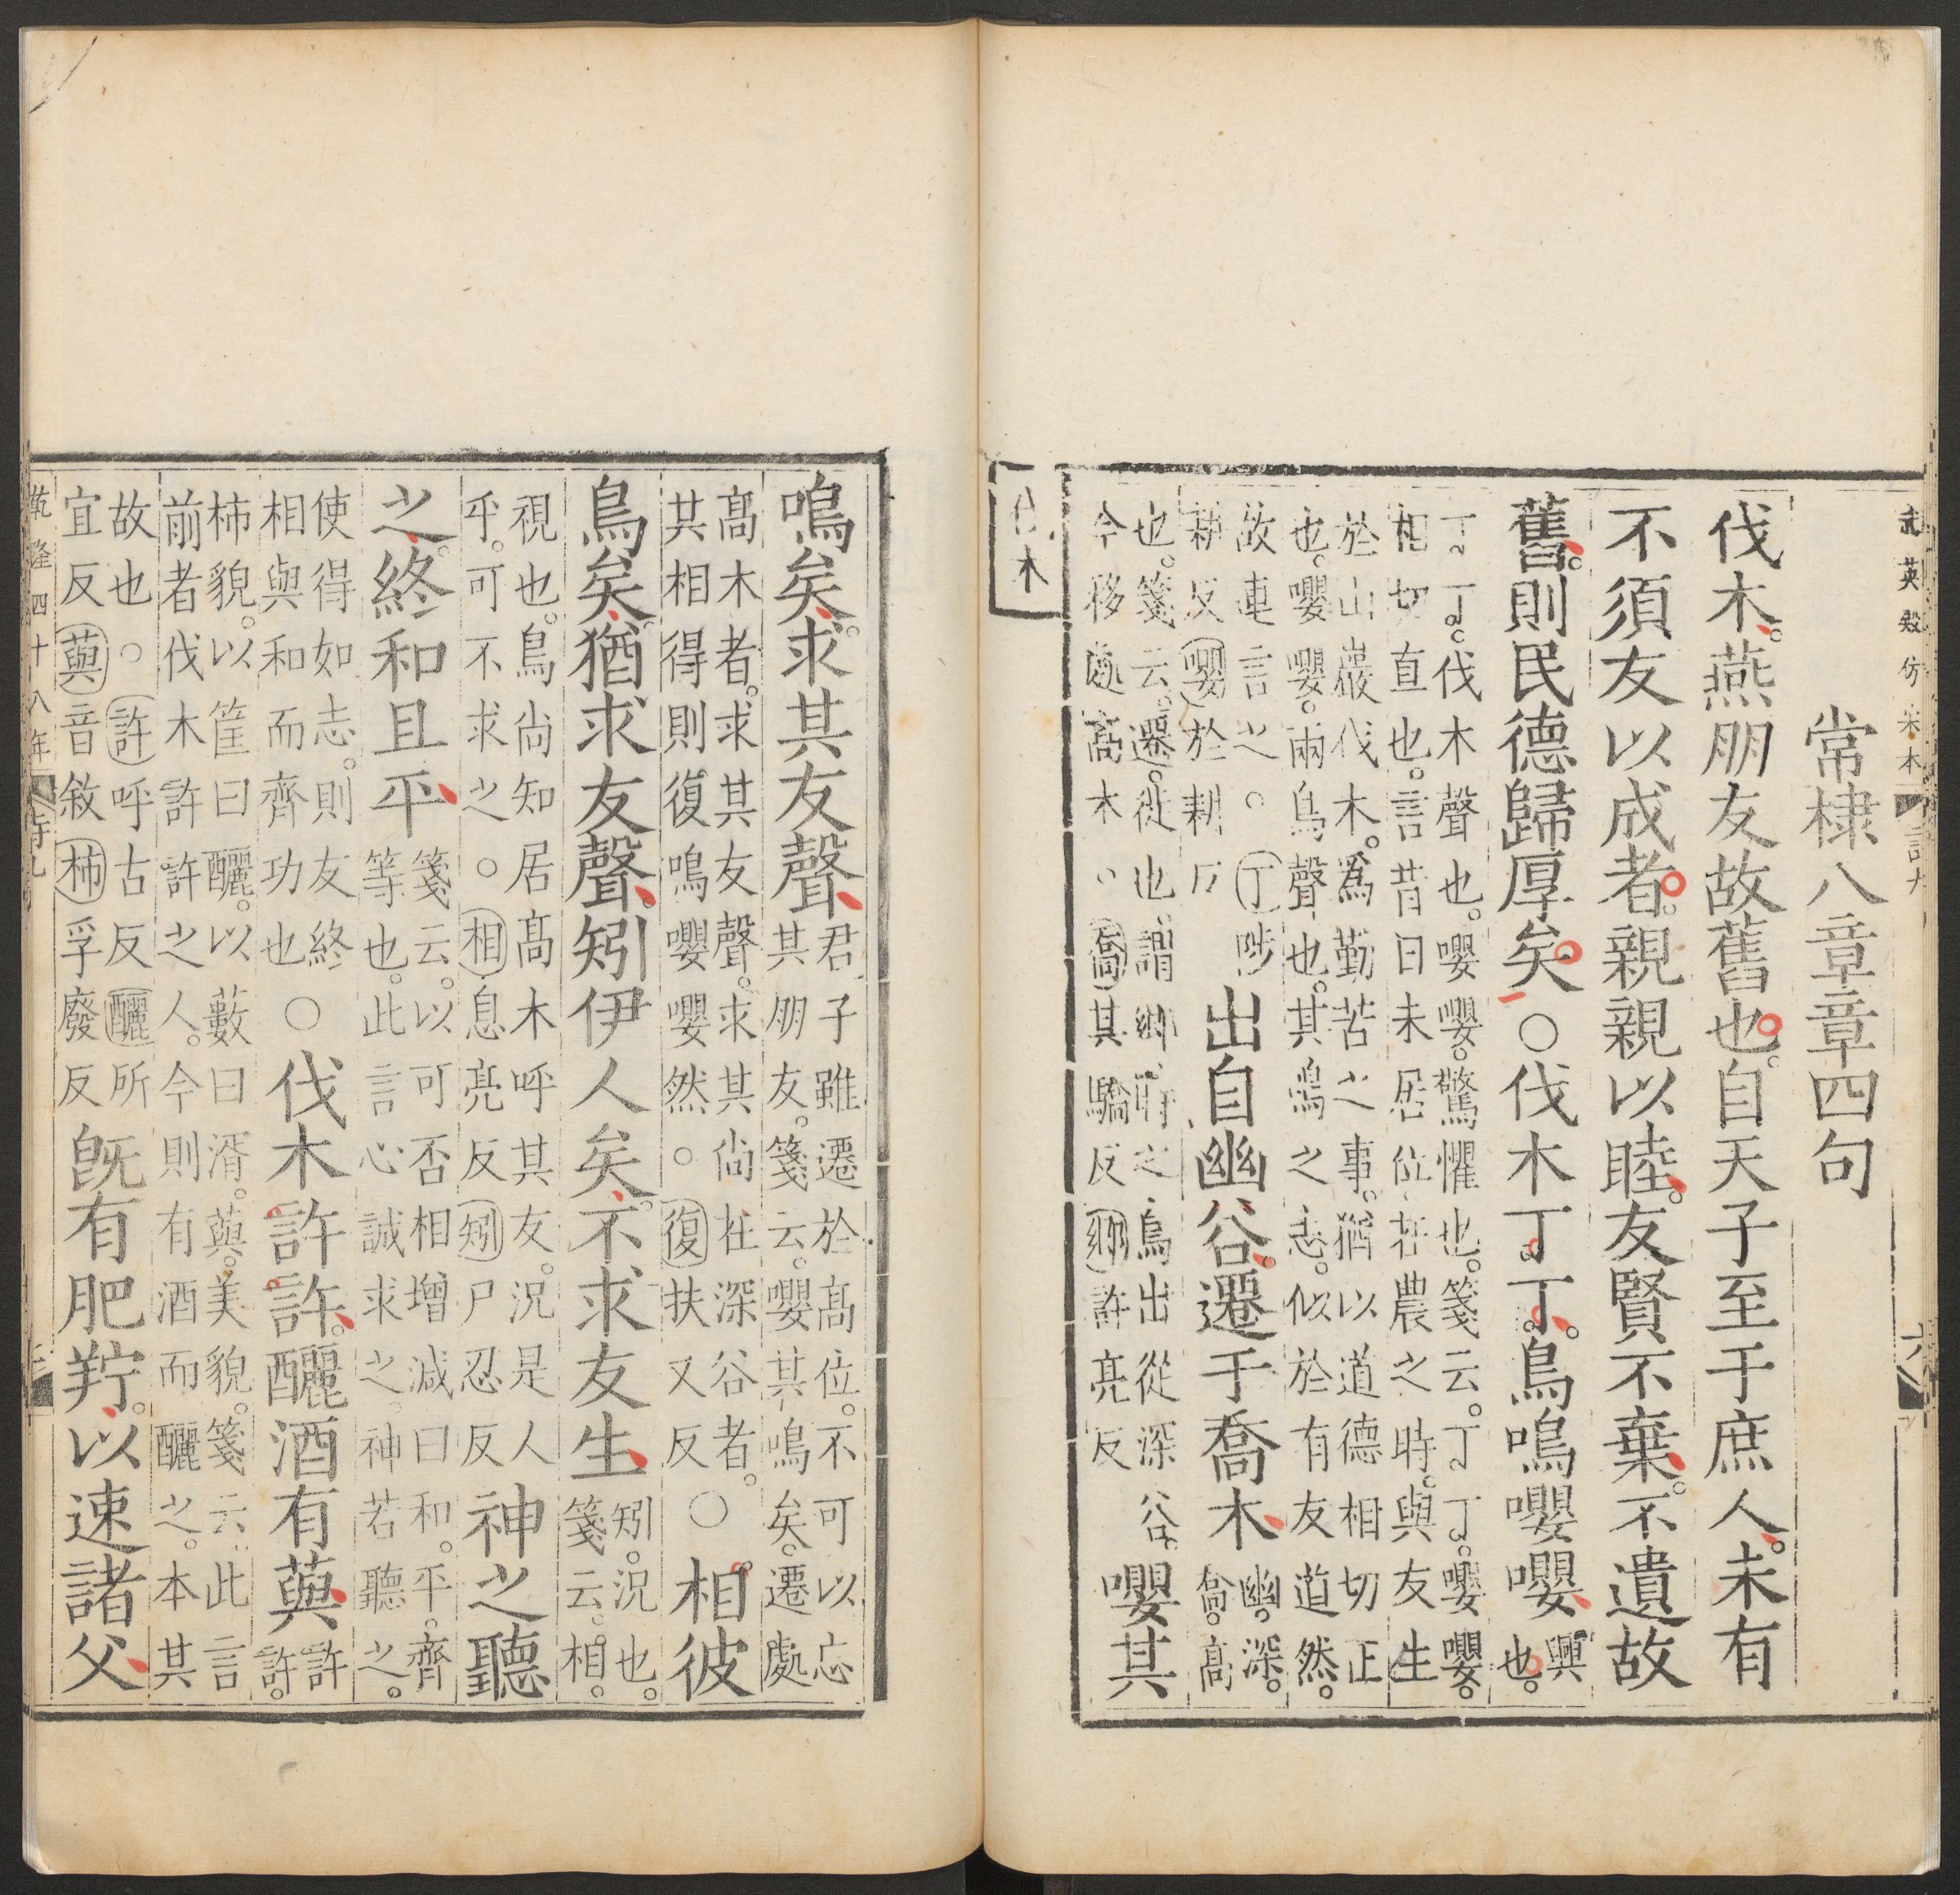 武英殿仿宋本
常棣八章章四句
伐木。燕朋友故舊也。自天子至于庶人。未有
不須友以成者。親親以睦。友賢不棄。不遺故
舊。則民德歸厚矣。○伐木丁丁。鳥鳴嚶嚶。興
也。
丁丁。伐木聲也。嚶嚶。驚懼也。箋云。丁丁。嚶嚶。
相切直也。言昔日未居位在農之時。與友生
於山巖伐木。爲勤苦之事。猶以道德相切正
也。嚶嚶。兩鳥聲也。其鳴之志。似於有友道然。
故連言之。○丁陟
耕反嚶於耕反
出自幽谷。遷于喬木。
幽。深。
喬。高
也。箋云。遷。徙也。謂鄉時之鳥出從深谷。
今移處高木。○喬其驕反鄉許亮反
嚶其
伐木
鳴矣。求其友聲。
君子雖遷於髙位。不可以忘
其朋友。箋云。嚶其鳴矣。遷處
髙木者。求其友聲。求其尚在深谷者。
其相得則復鳴嚶嚶然。○復扶又反
○相彼
鳥矣。猶求友聲。矧伊人矣。不求友生。
矧。況也。
箋云。相。
視也。鳥尚知居髙木呼其友。況是人
乎。可不求之。○相息亮反矧尸忍反
神之聽
之。終和且平。
箋云。以可否相增減曰和。平。齊
等也。此言心誠求之。神若聽之。
使得如志。則友終
相與和而齊功也
○伐木許許。釃酒有藇。
許
許。
柹貌。以筐曰釃。以藪曰湑。藇。美貌。箋云。此言
前者伐木許許之人。今則有酒而釃之。本其
故也。○許呼古反釃所
宜反藇音敘柹孚廢反
旣有肥羜。以速諸父。
乾隆四十八年